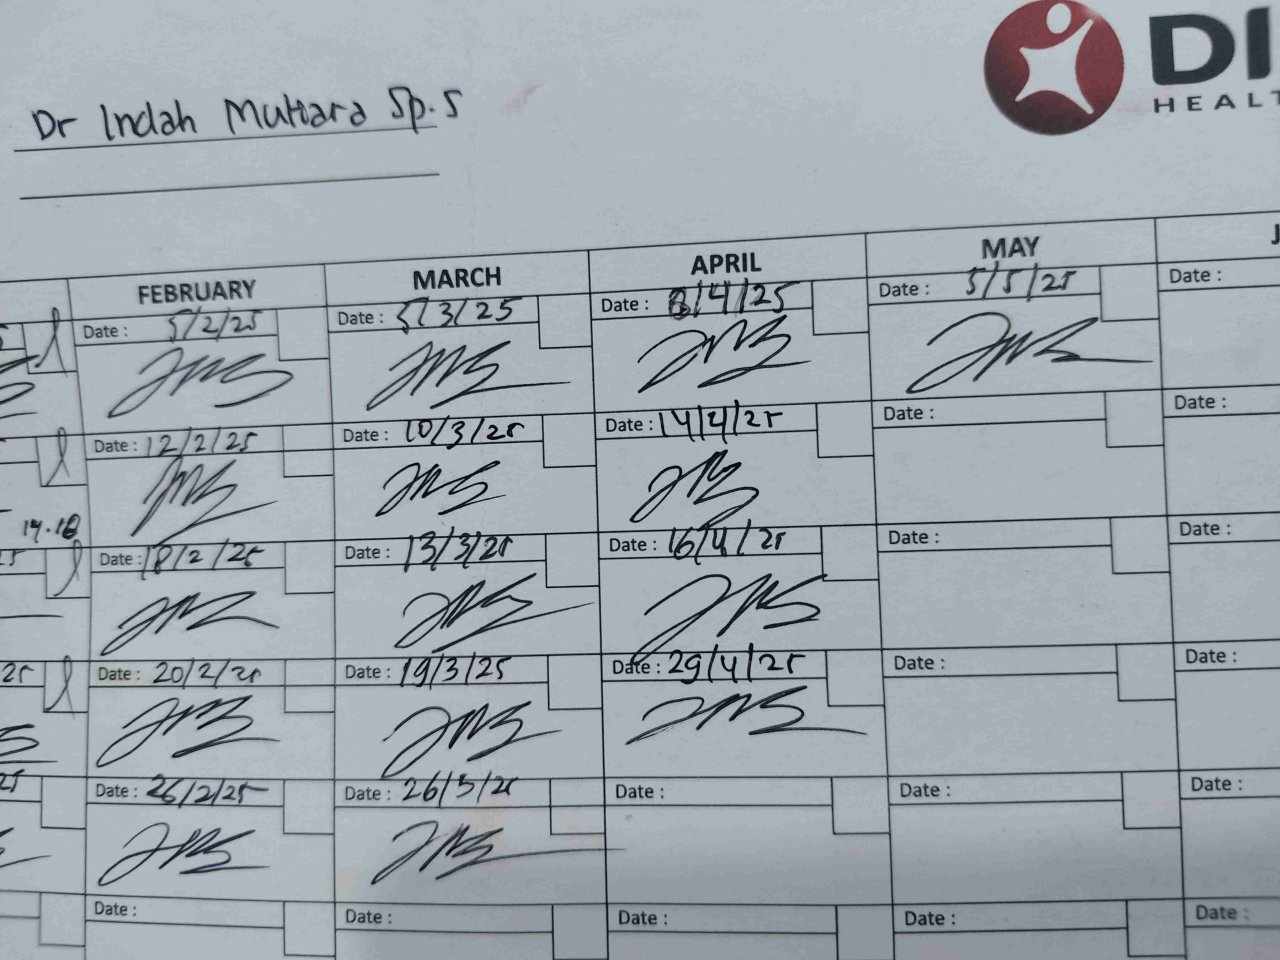 DI
HEALT
Dr Indah Muttara Sp.S
FEBRUARY MARCH APRIL MAY J
Date : 5/2/25 Date : 5/3/25 Date : 8/4/25 Date : 5/5/25 Date :
Date : 12/2/25 Date : 10/3/25 Date : 14/4/25 Date : Date :
14.18
Date : 18/2/25 Date : 13/3/25 Date : 16/4/25 Date : Date :
25 Date : 20/2/25 Date : 19/3/25 Date : 29/4/25 Date : Date :
25 Date : 26/2/25 Date : 26/3/25 Date : Date : Date :
Date : Date : Date : Date : Date :